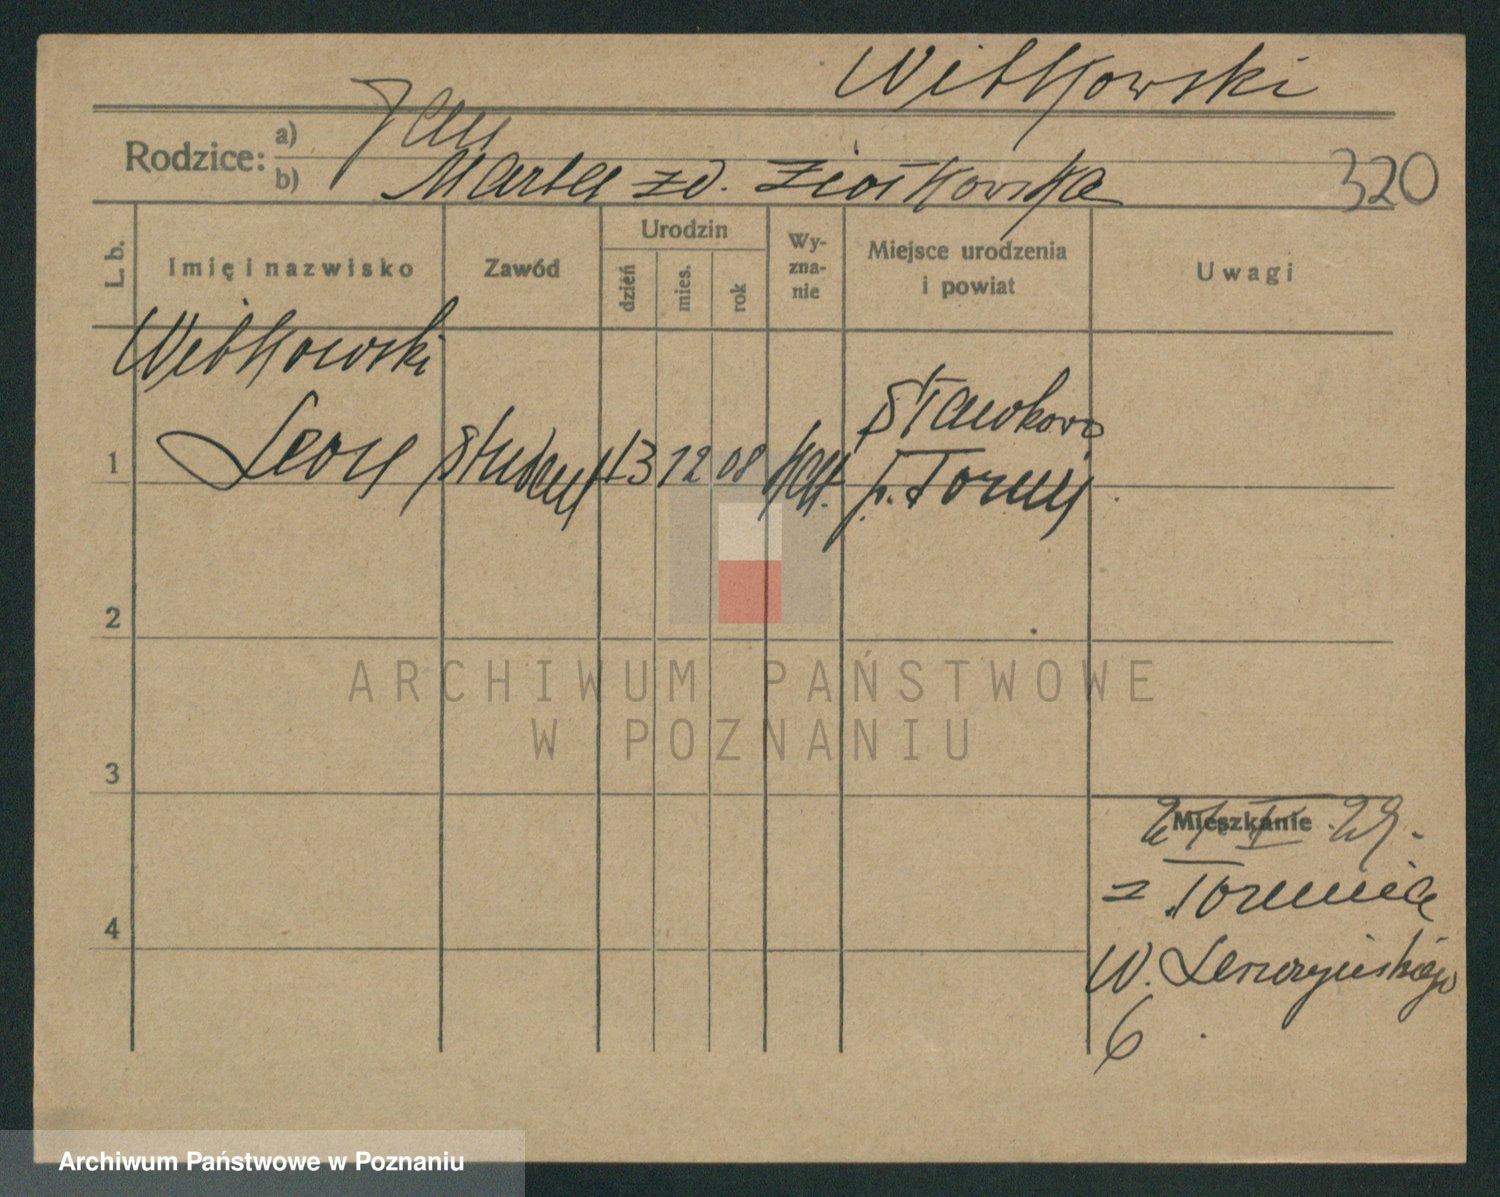 Witkowski
Rodzice:
a) Jan
b) Marta zd. Ziółkowska
320
L. b.
Imię i nazwisko
Zawód
Urodzin
dzień
mies.
rok
Wy-
zna-
nie
Miejsce urodzenia
i powiat
Uwagi
Witkowski
1 Leon student 13 12 08 kat.
Sławkowo
p. Toruń
2
3
4
Mieszkanie
29.
z Torunia
W.
6
ARCHIWUM PAŃSTWOWE
W POZNANIU
Archiwum Państwowe w Poznaniu